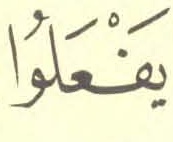 يَفْعَلُوا